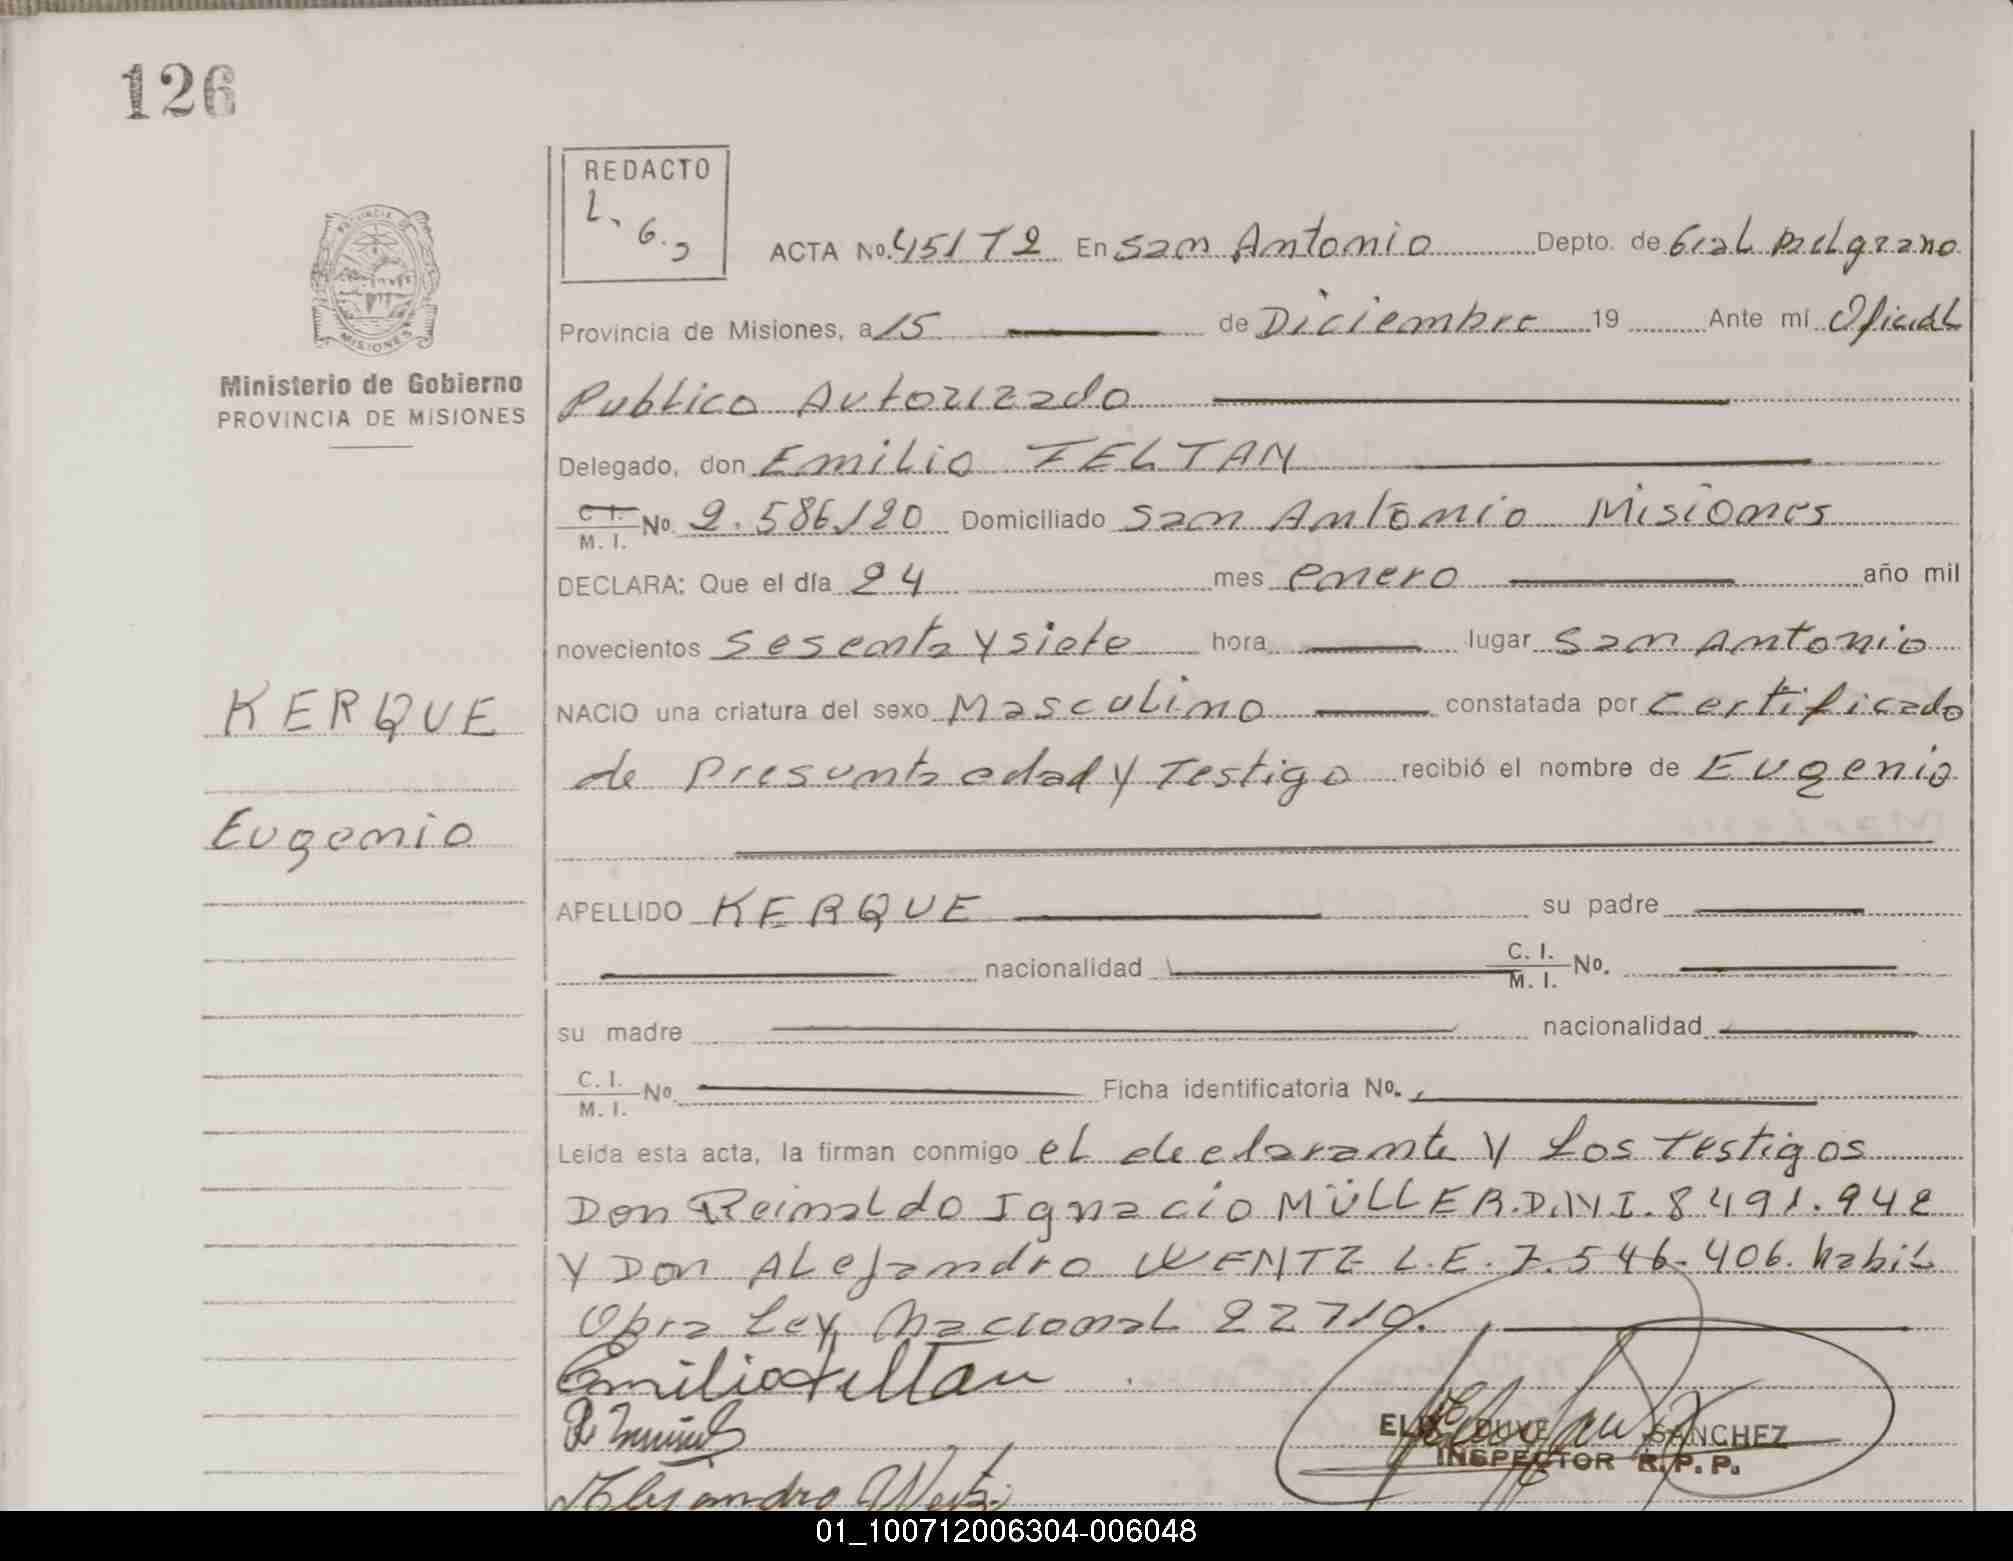 126
REDACTO
L. G.
ACTA Nº. 451 T2 En San Antonio Depto. de Gral Belgrano
PROVINCIA DE
MISIONES
Provincia de Misiones, a 15 de Diciembre 19 Ante mí Oficial
Ministerio de Gobierno
PROVINCIA DE MISIONES
Publico Autorizado
Delegado, don Emilio TELTAN
C I. M. I. Nº. 2.586120 Domiciliado San Antonio Misiones
DECLARA: Que el día 24 mes enero año mil
novecientos Sesenta y siete hora lugar San Antonio
KERQUE
NACIO una criatura del sexo Masculino constatada por Certificado
de Presunta edad y Testigo recibió el nombre de Eugenio
Eugenio
APELLIDO KERQUE su padre
nacionalidad C. I. M. I. Nº.
su madre nacionalidad
C. I. M. I. Nº. Ficha identificatoria Nº.
Leída esta acta, la firman conmigo el declarante y Los testigos
Don Reinaldo Ignacio MÜLLER.D.N.I.8491.942
y Don Alejandro WENTZ L.E. 7.546.406. habil
Obra Ley Nacional 22710.
Emilio teltan
DUVE SANCHEZ
INSPECTOR R.P.P.
Alejandro
01_100712006304-006048